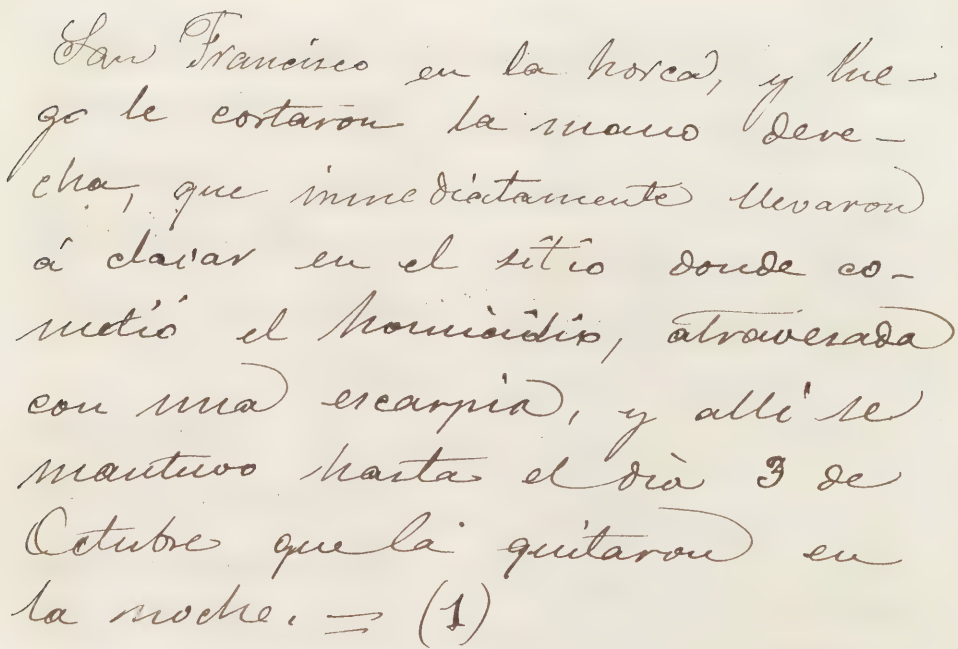 San Francisco en la horca, y lue-
go le cortaron la mano dere-
cha, que inmediatamente llevaron
á clavar en el sitio donde co-
metió el homicidio, atravesada
con una escarpia, y allí se
mantuvo hasta el dia 3 de
Octubre que la quitaron en
la noche. = (1)